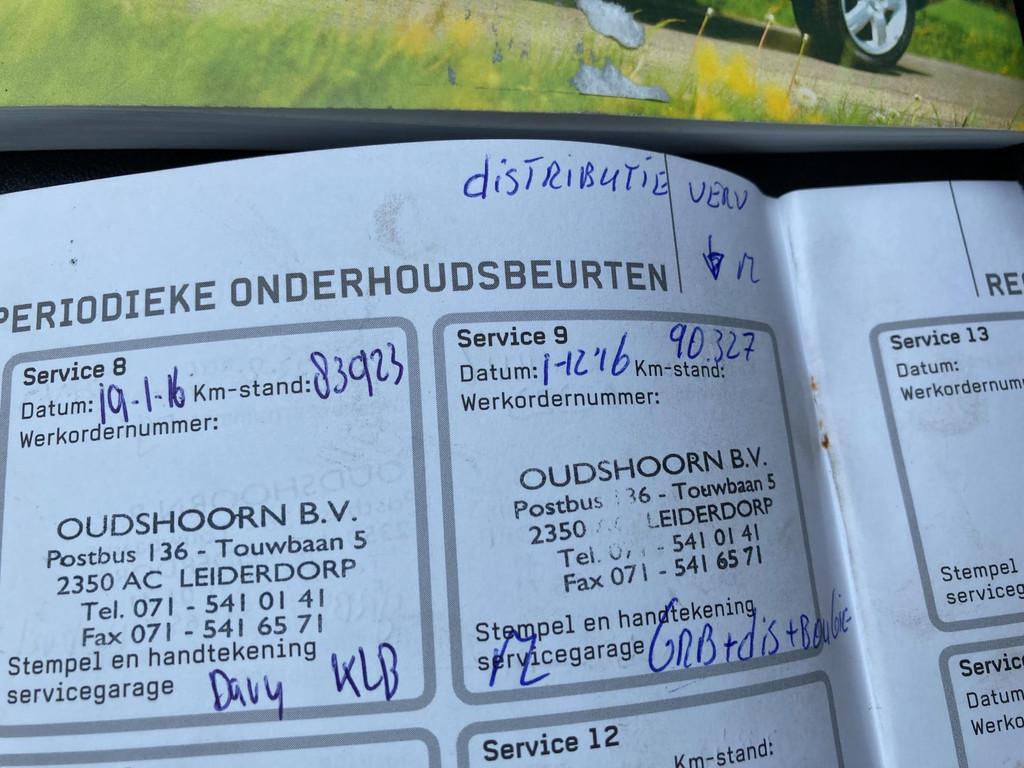 DISTRIBUTIE VERV
PERIODIEKE ONDERHOUDSBEURTEN
Service 8
Datum: 19-1-16 Km-stand: 83923
Werkordernummer:
OUDSHOORN B.V.
Postbus 136 - Touwbaan 5
2350 AC LEIDERDORP
Tel. 071 - 541 01 41
Fax 071 - 541 65 71
Stempel en handtekening
servicegarage Davy KLB
Service 9
Datum: 1-12-16 Km-stand: 90.327
Werkordernummer:
OUDSHOORN B.V.
Postbus 136 - Touwbaan 5
2350 LEIDERDORP
Tel. 071 - 541 01 41
Fax 071 - 541 65 71
Stempel en handtekening
servicegarage GRB+dis+Bougie
Service 12
Km-stand:
RE
Service 13
Datum:
Werkordernum
Stempel
serviceg
Servic
Datum
Werko